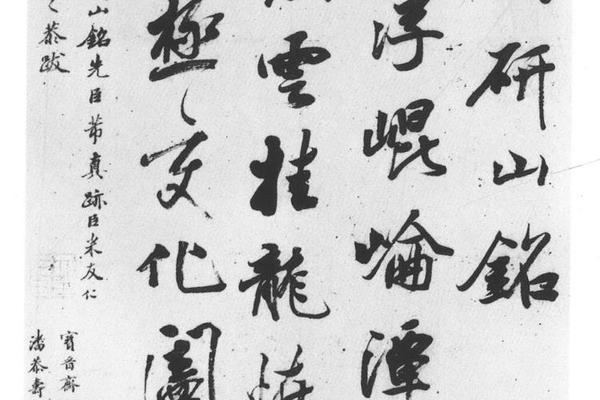 研山銘
浮崐崘潭
雲挂龍
極變化闔
山銘先臣芾真跡臣米友仁
恭跋
寶晉齋
潘恭壽